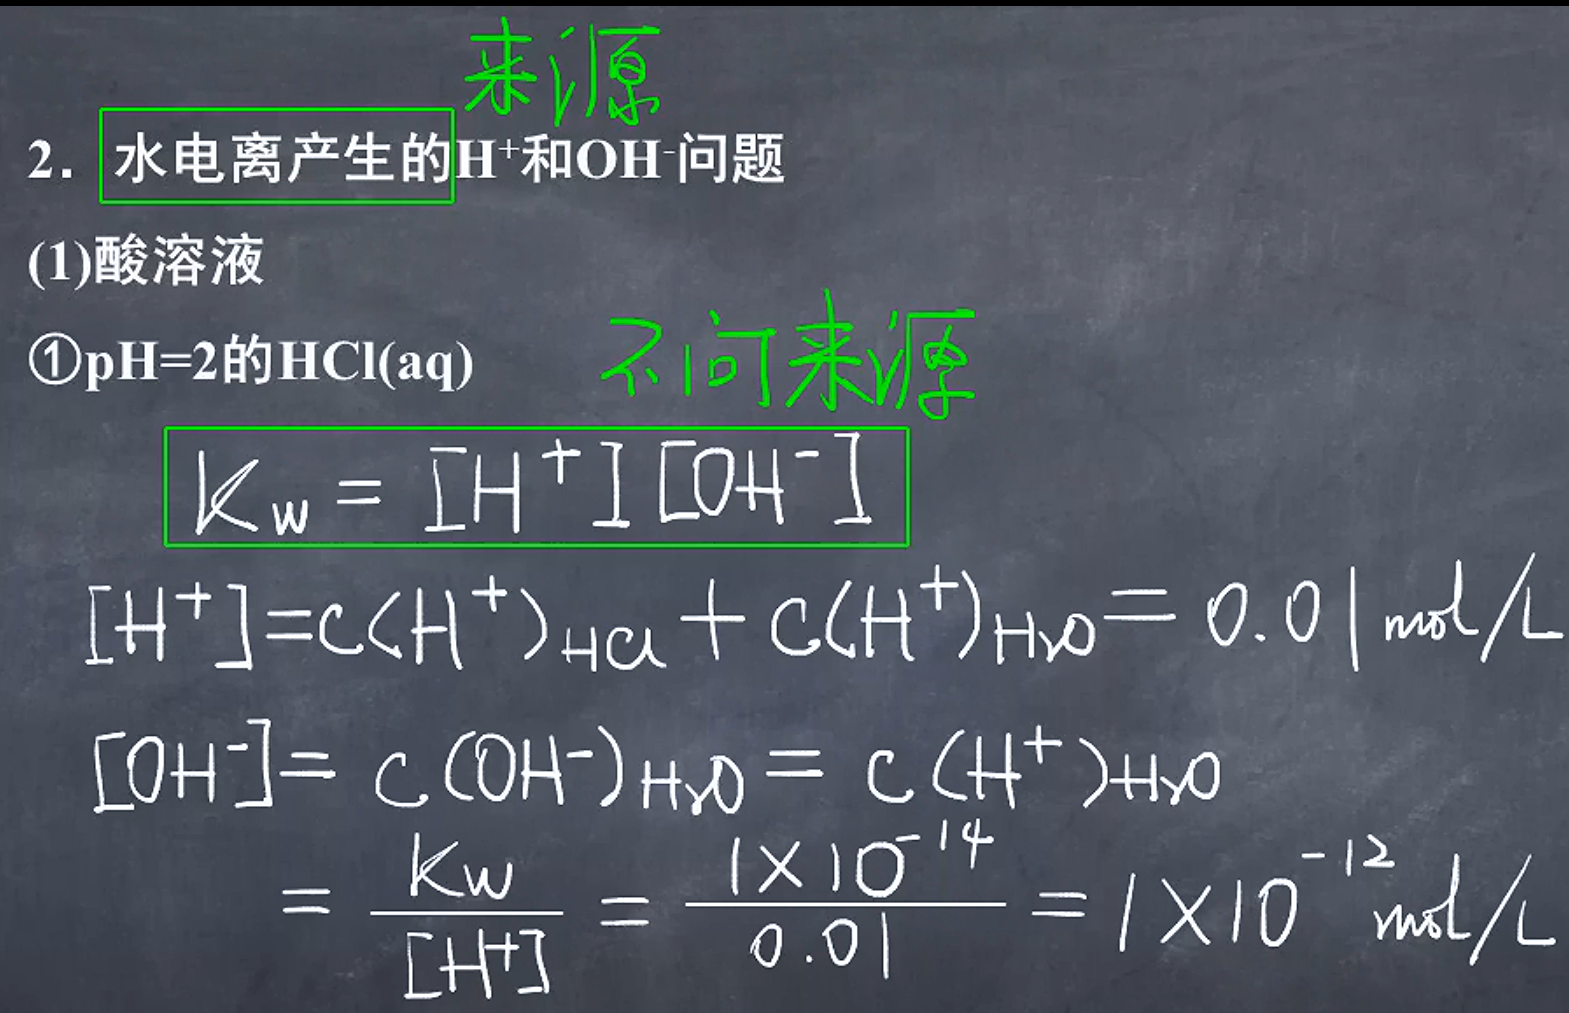 来源
2. 水电离产生的H⁺和OH⁻问题
(1)酸溶液
①pH=2的HCl(aq) 不问来源
Kw = [H⁺][OH⁻]
[H⁺]=C(H⁺)HCl + C(H⁺)H₂O = 0.01 mol/L
[OH⁻]= C(OH⁻)H₂O = C(H⁺)H₂O
= Kw/[H⁺] = 1×10⁻¹⁴/0.01 = 1×10⁻¹² mol/L